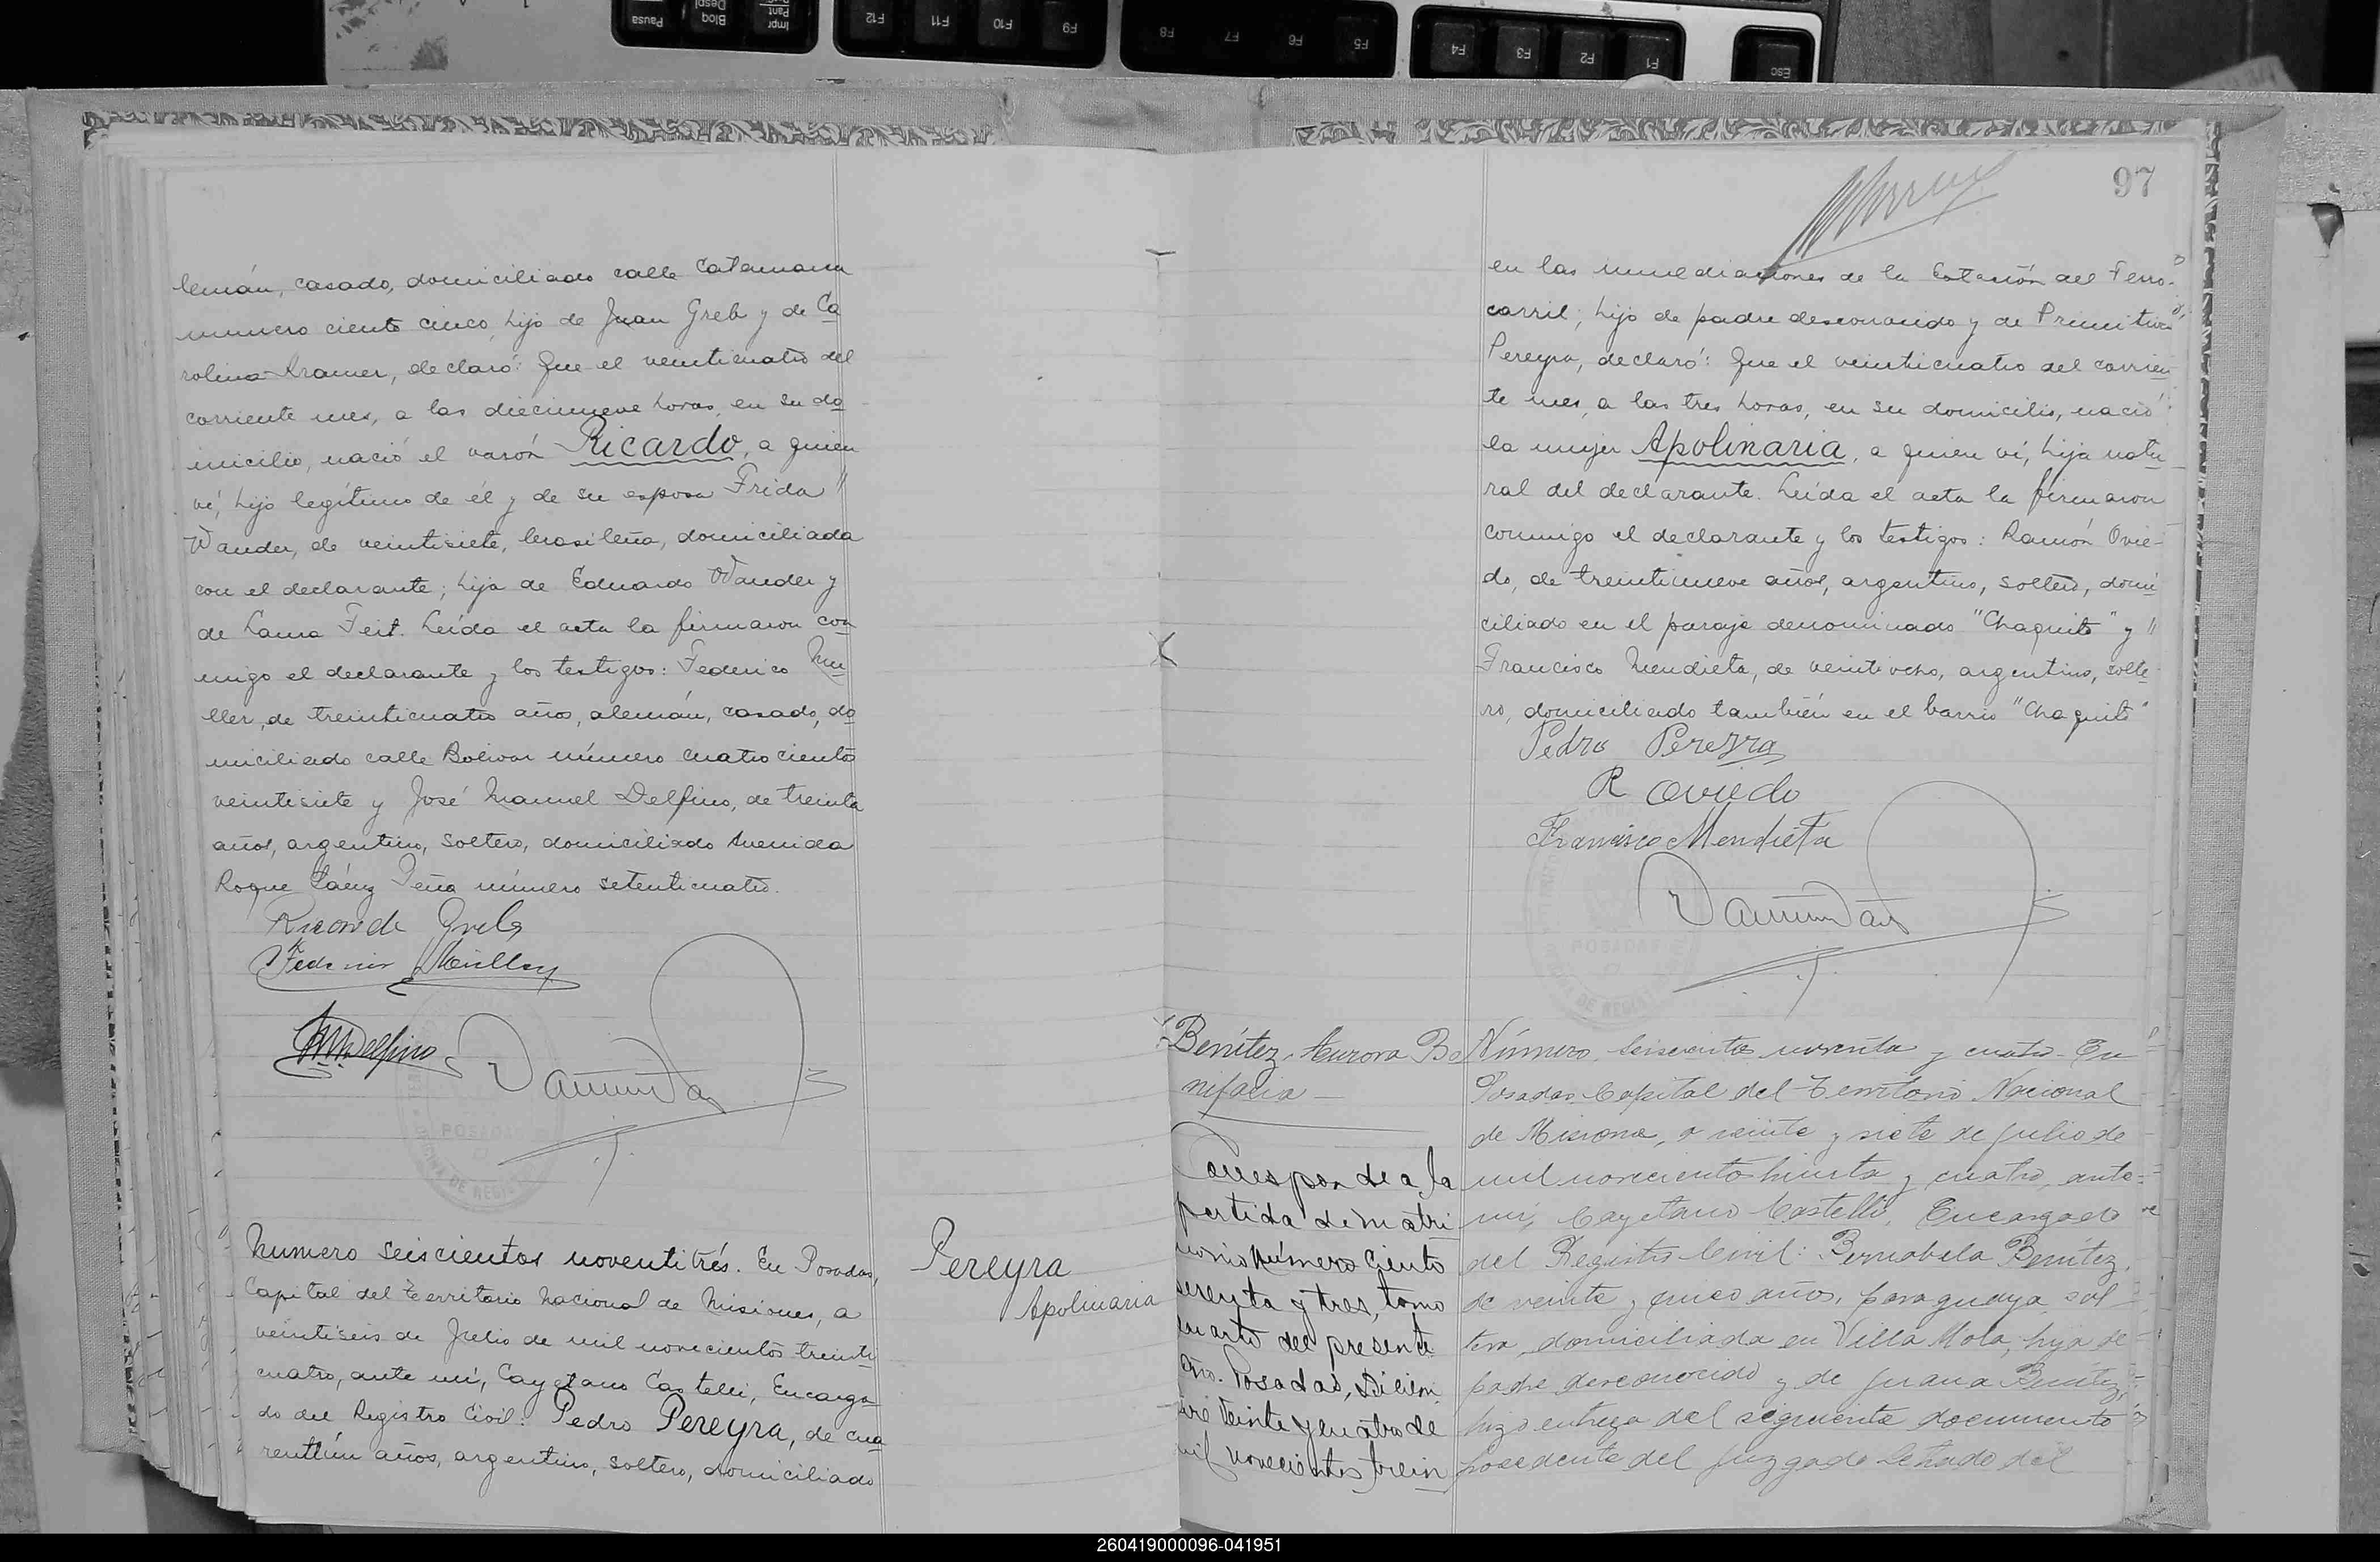 lemán, casado, domiciliado calle Catamarca
número ciento cinco, hijo de Juan Greb y de Ca
rolina Kramer, declaró: Que el veinticuatro del
corriente mes, a las diecinueve horas, en su do
micilio, nació el varón Ricardo, a quien
ví, hijo legítimo de él y de su esposa Frida "
Wander, de veintisiete, brasileña, domiciliada
con el declarante; hija de Eduardo Wander y
de Laura Feit. Leída el acta la firmaron con
migo el declarante y los testigos: Federico Mu
ller, de treinticuatro años, alemán, casado, do
miciliado calle Bolivar número cuatrocientos
veintisiete y José Manuel Delfino, de treinta
años, argentino, soltero, domiciliado Avenida
Roque Sáenz Peña número setenticuatro.
Ricardo Greb
Federico Müller
JMDelfino
POSADAS
Número seiscientos noventitrés. En Posadas,
Capital del Territorio Nacional de Misiones, a
veintiseis de Julio de mil novecientos treinti
cuatro, ante mí, Cayetano Castelli, Encarga
do del Registro Civil: Pedro Pereyra, de cua
rentiún años, argentino, soltero, domiciliado
Pereyra
Apolinaria
97
en las inmediaciones de la Estación del Ferro-
carril; hijo de padre desconocido y de Primitiva
Pereyra, declaró: Que el veinticuatro del corrien
te mes, a las tres horas, en su domicilio, nació
la mujer Apolinaria, a quien ví, hija natu
ral del declarante. Leída el acta la firmaron
conmigo el declarante y los testigos: Ramón Ovie-
do, de treintinueve años, argentino, soltero, domi
ciliado en el paraje denominado "Chaquito" y "
Francisco Mendieta, de veintiocho, argentino, solte
ro, domiciliado también en el barrio "Chaquito"
Pedro Pereyra
R Oviedo
Francisco Mendieta
POSADAS
Benítez, Aurora Bo
nifacia —
Corresponde a la
partida de matri
monio número ciento
sesenta y tres, tomo
cuarto del presente
año. Posadas, Diciem
bre veinte y cuatro de
mil novecientos trein
Número seiscientos noventa y cuatro. En
Posadas Capital del Territorio Nacional
de Misiones, a veinte y siete de julio de
mil novecientos treinta y cuatro, ante
mí, Cayetano Castelli, Encargado
del Registro Civil: Bernabela Benítez,
de veinte y cinco años, paraguaya, sol
tera, domiciliada en Villa Mola, hija de
padre desconocido y de Juana Benítez,
hizo entrega del siguiente documento
procedente del Juzgado Letrado del
Esc
F1
F2
F3
F4
F5
F6
F7
F8
F9
F10
F11
F12
Impr
Pant
Bloq
Despl
Pausa
260419000096-041951